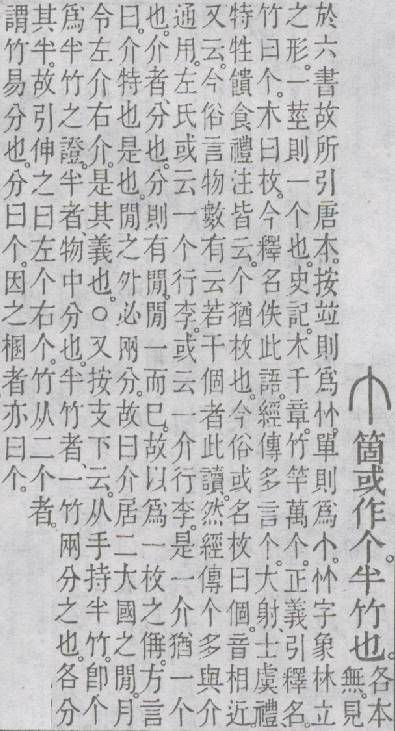 个 箇或作个。半竹也。各本
無。見
於六書故所引唐本。按竝則爲𥫗。單則爲个。𥫗字象林立
之形。一莖則一个也。史記。木千章。竹竿萬个。正義引釋名。
竹曰个。木曰枚。今釋名佚此語。經傳多言个。大射、士虞禮、
特牲饋食禮注皆云。个猶枚也。今俗或名枚曰個。音相近。
又云。今俗言物數有云若干個者此讀。然經傳个多與介
通用。左氏或云一个行李。或云一介行李。是一介猶一个
也。介者、分也。分則有閒。閒一而已。故以爲一枚之偁。方言
曰。介特也。是也。閒之外必兩分。故曰介居二大國之閒。月
令左介右介。是其義也。○又按支下云。从手持半竹。卽个
爲半竹之證。半者、物中分也。半竹者、一竹兩分之也。各分
其半。故引伸之曰左个右个。竹从二个者。
謂竹易分也。分曰个。因之梱者亦曰个。